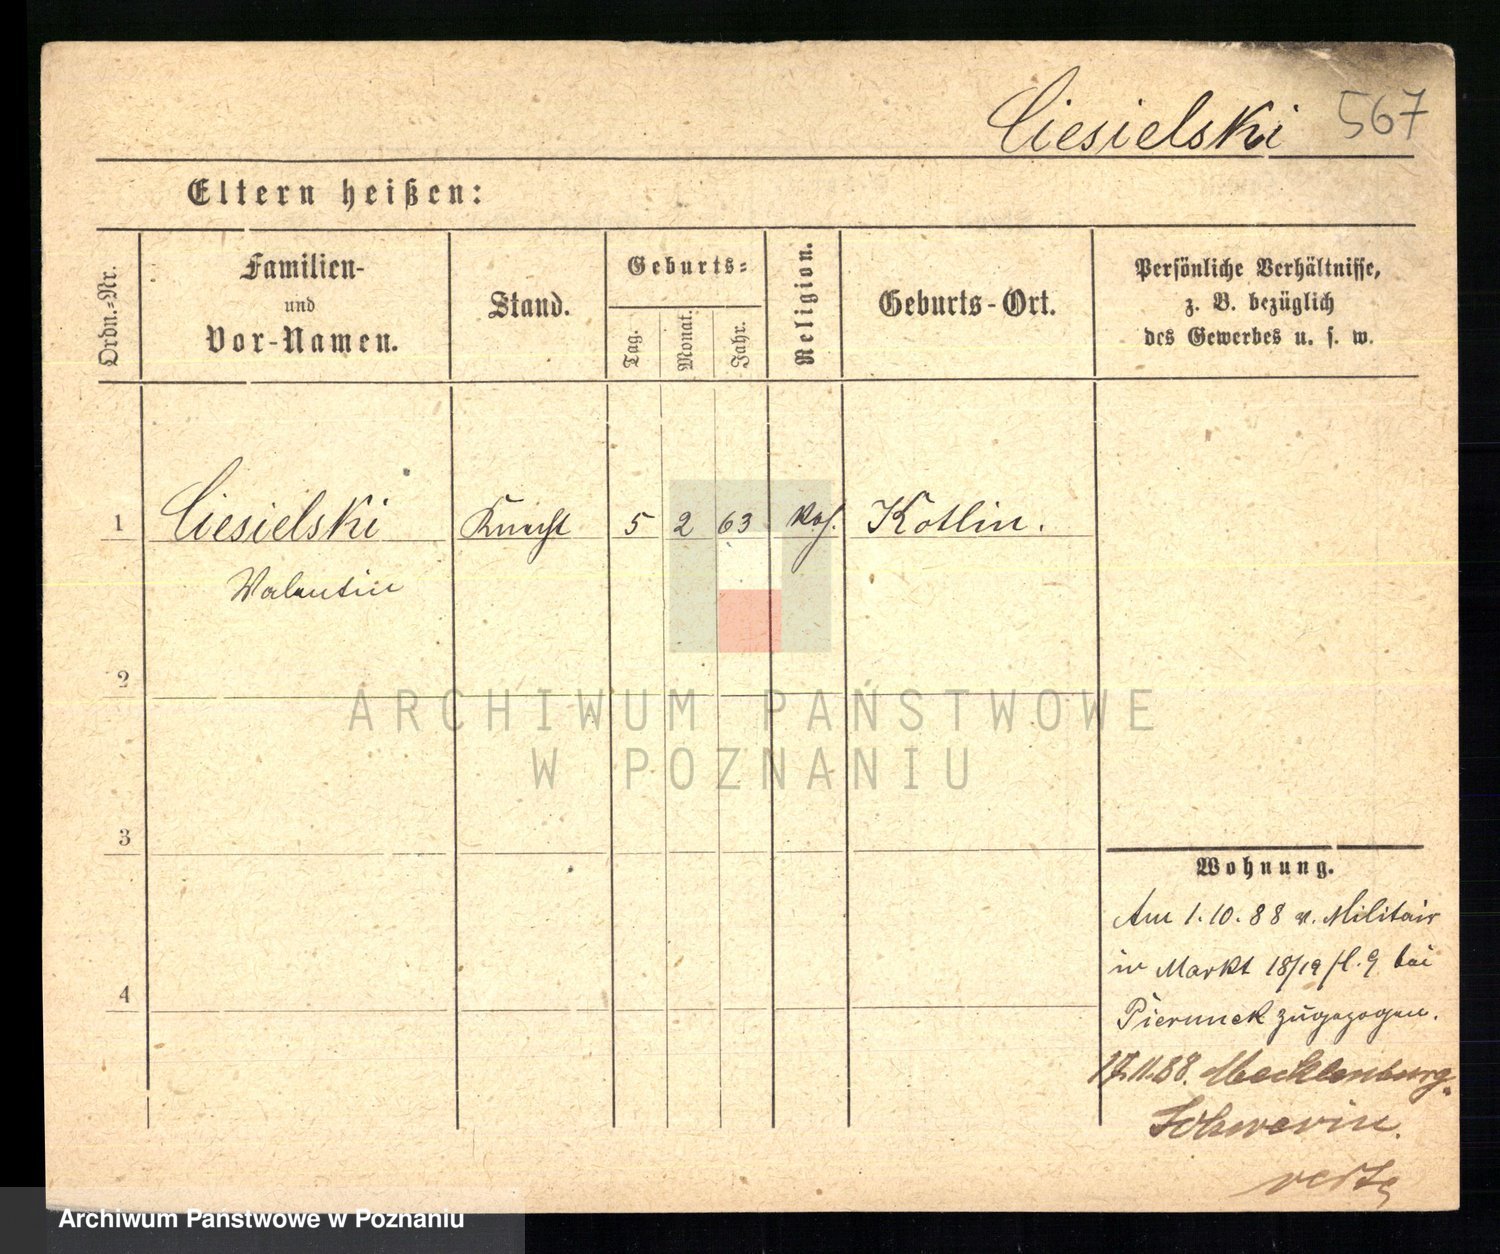 Ciesielski 567
Eltern heißen:
Ordn.-Nr.
Familien-
und
Vor-Namen.
Stand.
Geburts-
Tag.
Monat.
Jahr.
Religion.
Geburts-Ort.
Persönliche Verhältnisse,
z. B. bezüglich
des Gewerbes u. s. w.
1 Ciesielski Knecht 5 2 63 kath. Kotlin.
Valentin
2
3
4
Wohnung.
Am 1.10.88 v. Militair
in Markt 18/19 bei
zugezogen.
17.11.88. Mecklenburg-
Schwerin.
ARCHIWUM PAŃSTWOWE
W POZNANIU
Archiwum Państwowe w Poznaniu